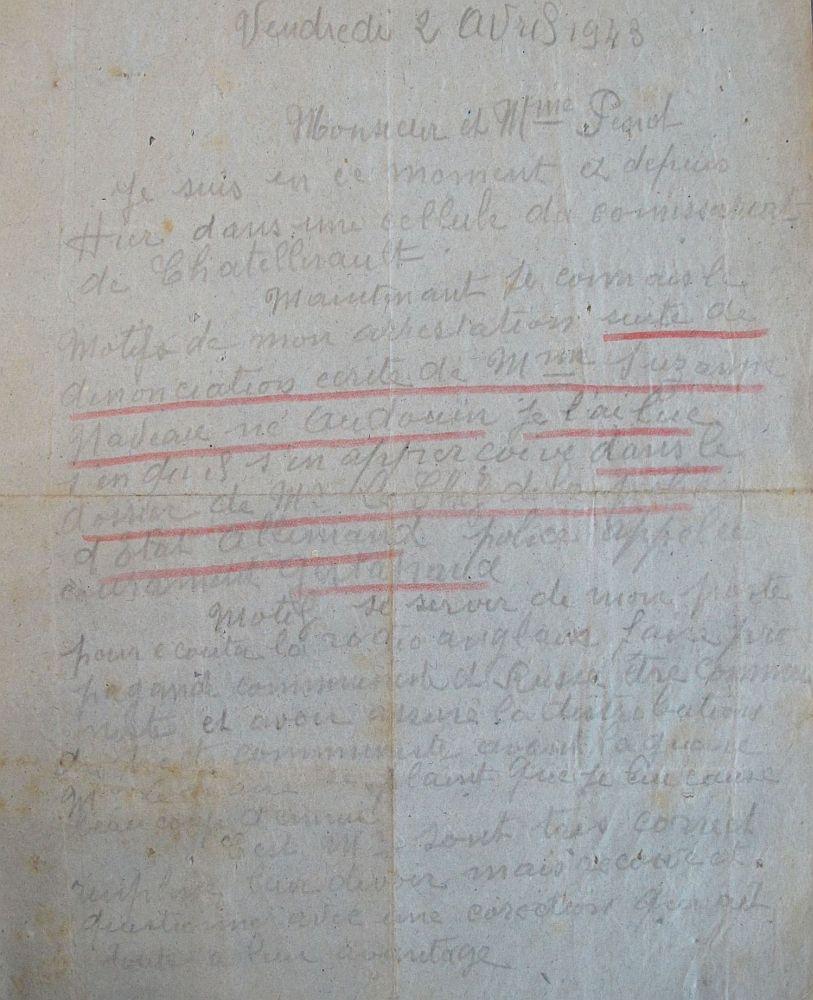 Vendredi 2 Avril 1943
Monsieur et Mme Penot
Je suis en ce moment et depuis
Hier dans une cellule du comissariat
de Chatellerault
Maintenant je connais le
Motifs de mon arrestation suite de
denonciation ecrite de Mme Suzanne
né Audouin je l'ai lue
s'en apper dans le
dossier de Mr Le Chef de la police
d'Etat Allemand police appelee
courament
Motif se servir de mon poste
pour ecouter la radio anglaise faire pro
pagande communiste et Russe etre commu
niste et avoir assuré la distribution
de communiste avant la guerre
se plaint que je lui cause
beaucoup d'ennui
C'est Mrs sont tres correct
leur devoir mais
questionne avec une corection qui est
toute a leur avantage